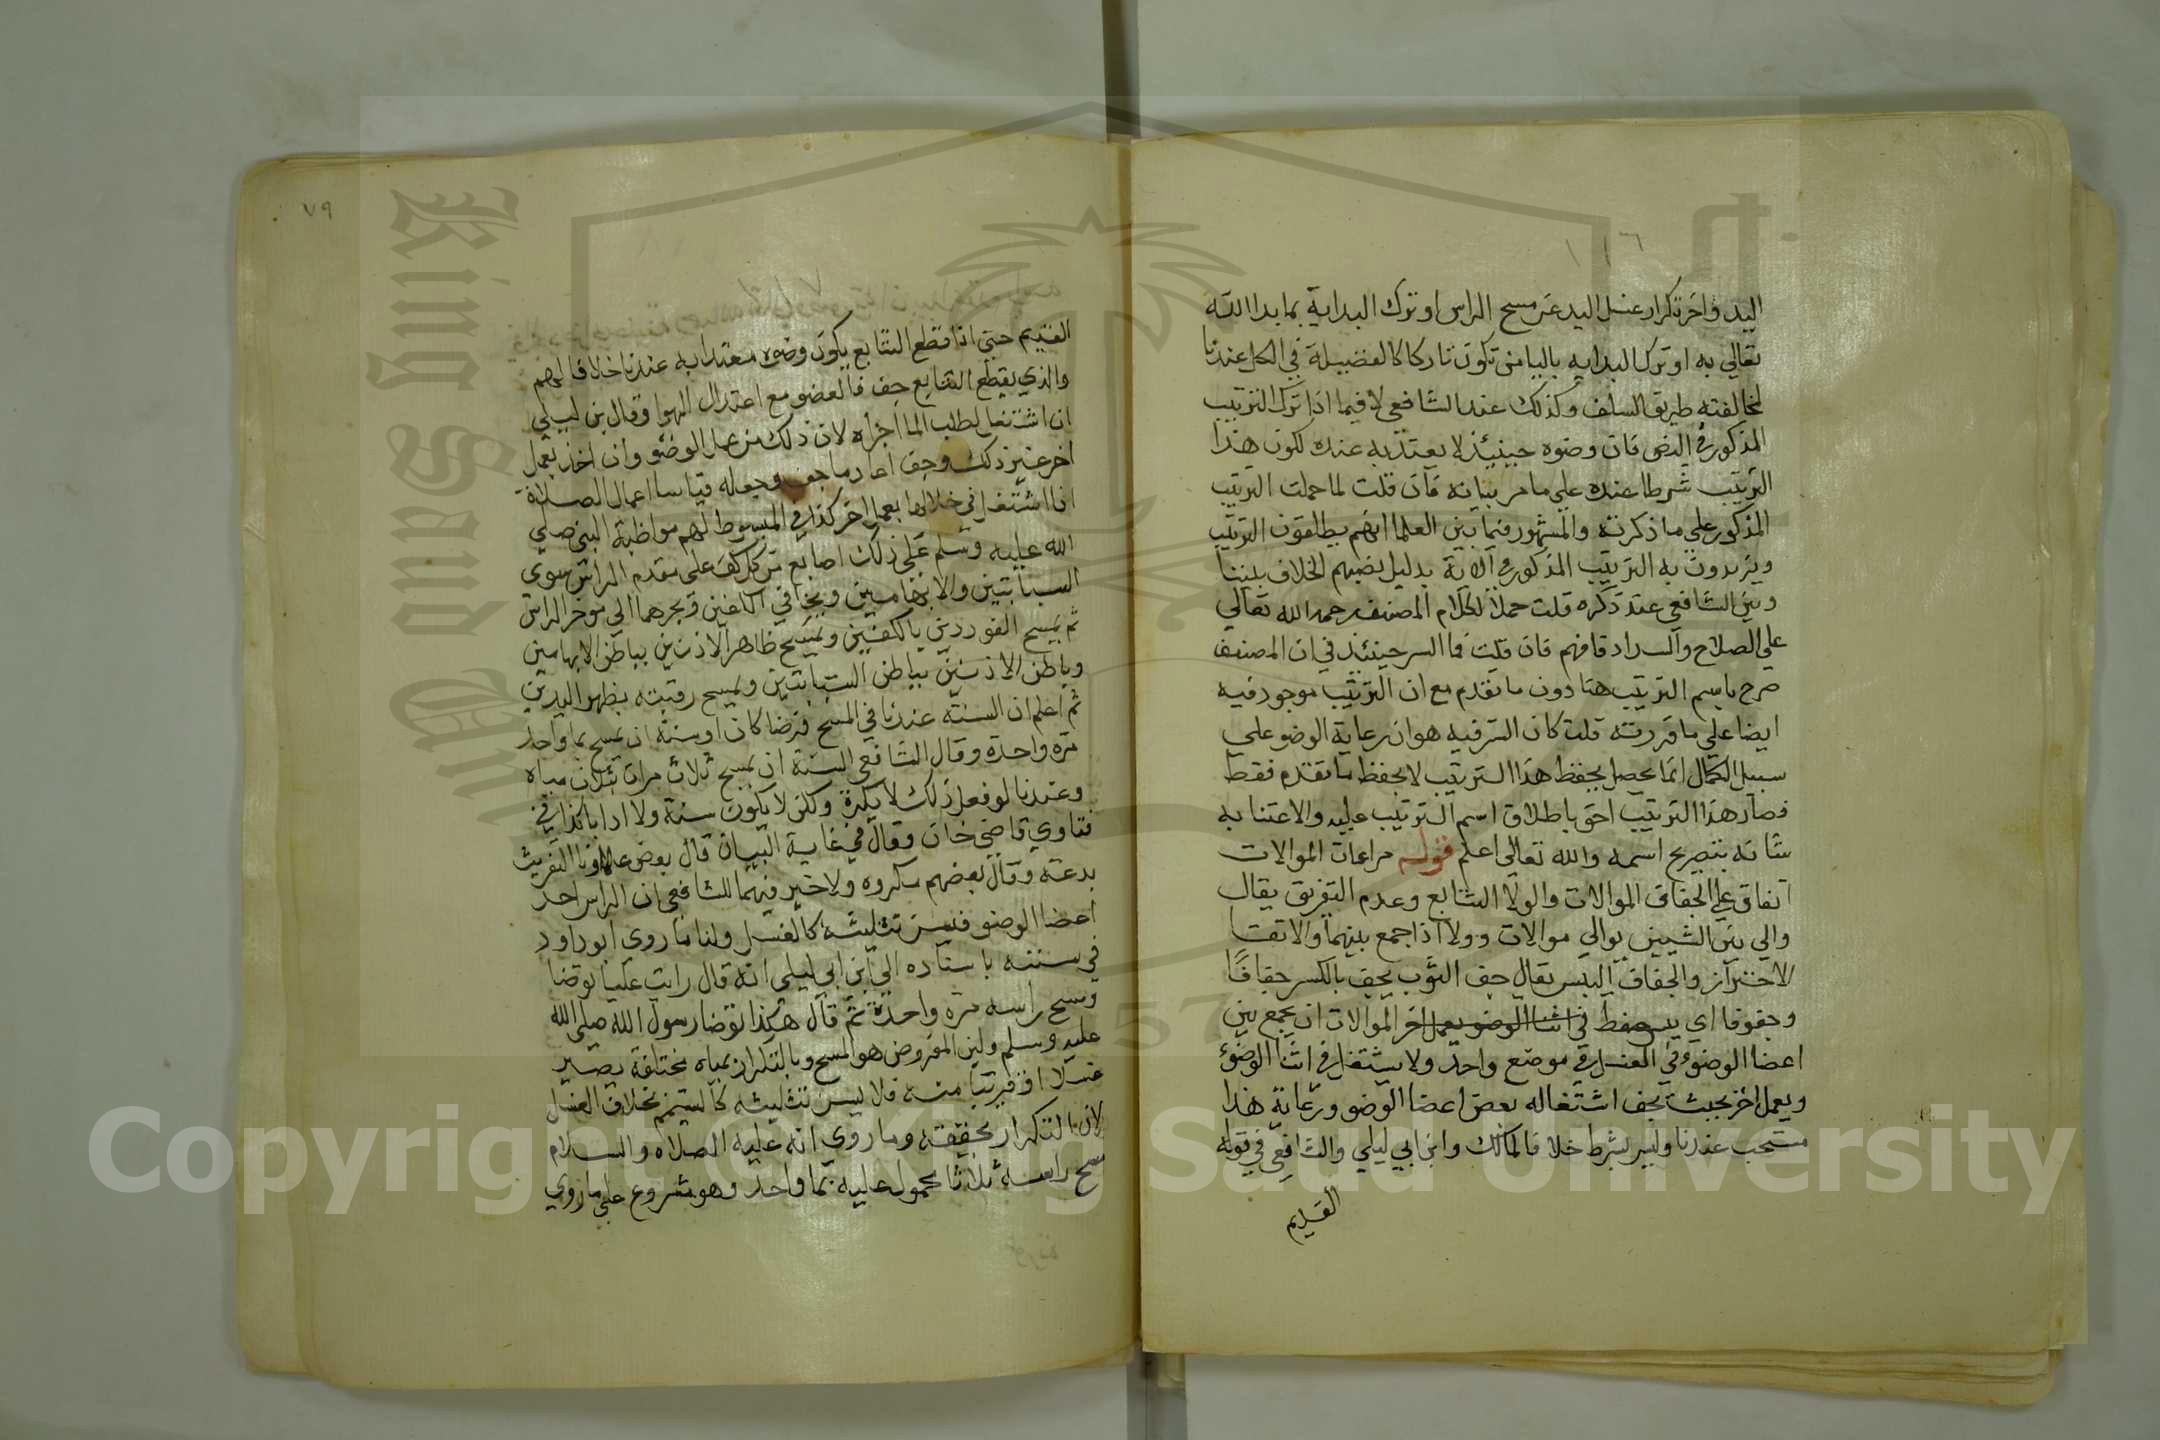 اليد واخر تكرار غسل اليد عن مسح الراس او ترك البداية بما بدا الله
تعالي به او ترك البدايه باليامن تكون تاركا كالفضيلة في الكل عندنا
لمخالفته طريق السلف وكذلك عند الشافعي لا فيما اذا ترك الترتيب
المذكور في النص فان وضوه حينيئذ لا يعتد به عنده لكون هذا
الترتيب شرطا عنده علي ما مر بيانه فان قلت لما حملت الترتيب
المذكور علي ما ذكرته والمشهور فيما بين العلما انهم يطلقون الترتيب
ويريدون به الترتيب المذكور في الاية بدليل نصبهم الخلاف بيننا
وبين الشافعي عند ذكره قلت حملا لكلام المصنف رحمه الله تعالي
علي الصلاح والسداد فافهم فان قلت فما السر حينئذ في ان المصنف
صرح باسم الترتيب هنا دون ما تقدم مع ان الترتيب موجود فيه
ايضا علي ما قررته قلت كان السر فيه هو ان رعاية الوضو علي
سبيل الكمال انما يحصل بحفظ هذا الترتيب لا بحفظ ما تقدم فقط
فصار هذا الترتيب احق باطلاق اسم الترتيب عليه والاعتنا به
شانه بتصريح اسمه والله تعالي اعلم قوله مراعات الموالات
اتفاق علي الجفاف الموالات والولا التتابع وعدم التفريق يقال
والي بين الشيين يوالي موالات وولا اذا جمع بينهما والاتقا
لاحتراز والجفاف اليبس يقال جف الثوب يجف بالكسر جفافا
وجفوفا اي يبس في اثنا الوضو بعمل اخر الموالات ان يجمع بين
اعضا الوضوء في الغسل في موضع واحد ولا يشتغل في اثنا الوضوء
وبعمل اخر بحيث يجف اشتغاله بعض اعضا الوضو ورعاية هذا
مستحب عندنا وليس بشرط خلافا لمالك وابن ابي ليلي والشافعي في قوله
القديم
٧٩
القديم حتي اذا قطع التتابع يكون وضوه معتدا به عندنا خلافا لهم
والذي يقطع التتابع جفاف العضو مع اعتدال الهوا وقال بن ليلي
ان اشتغل لطلب الما اجزاه لان ذلك من عمل الوضوء وان اخذ بعمل
اخر غير ذلك وجف اعاد ما جف وجعله قياسا اعمال الصلاة
اذا اشتغل في خلالها بعمل اخر كذا في المبسوط لهم مواظبة النبي صلي
الله عليه وسلم علي ذلك اصابع من كل كف علي مقدم الراس سوي
السبابتين والابهامين ويجافي الكفين ويجرهما الي موخر الراس
ثم يمسح الفودين بالكفين ويمسح ظاهر الاذنين بباطن الابهامين
وباطن الاذنين بباطن السبابتين ويمسح رقبته بظهر اليدين
ثم اعلم ان السنة عندنا في المسح فرضا كان او سنة ان يمسح بما واحد
مرة واحدة وقال الشافعي السنة ان يمسح ثلاث مرات بثلاث مياه
وعندنا لو فعل ذلك لا يكره ولكن لا يكون سنة ولا ادبا كذا في
فتاوي قاضي خان وقال في غاية البيان قال بعض علماونا التفريث
بدعة وقال بعضهم مكروه ولا خير فيهما للشافعي ان الراس احد
اعضا الوضو فيسن تثليثه كالغسل ولنا ما روي ابو داود
في سننه باسناده الي ابن ابي ليلي انه قال رايت عليا توضا
ومسح راسه مرة واحدة ثم قال هكذا توضا رسول الله صلي الله
عليه وسلم ولان المفروض هو المسح وبالتكرار بمياه مختلفة يصير
غسلا او قريبا منه فلا يسن تثليثه كالتيمم بخلاف الغسل
لان بالتكرار تحقيقه وما روي انه عليه الصلاه والسلام
مسح راسه ثلاثا محموله عليه بما واحد وهو مشروع علي ما روي